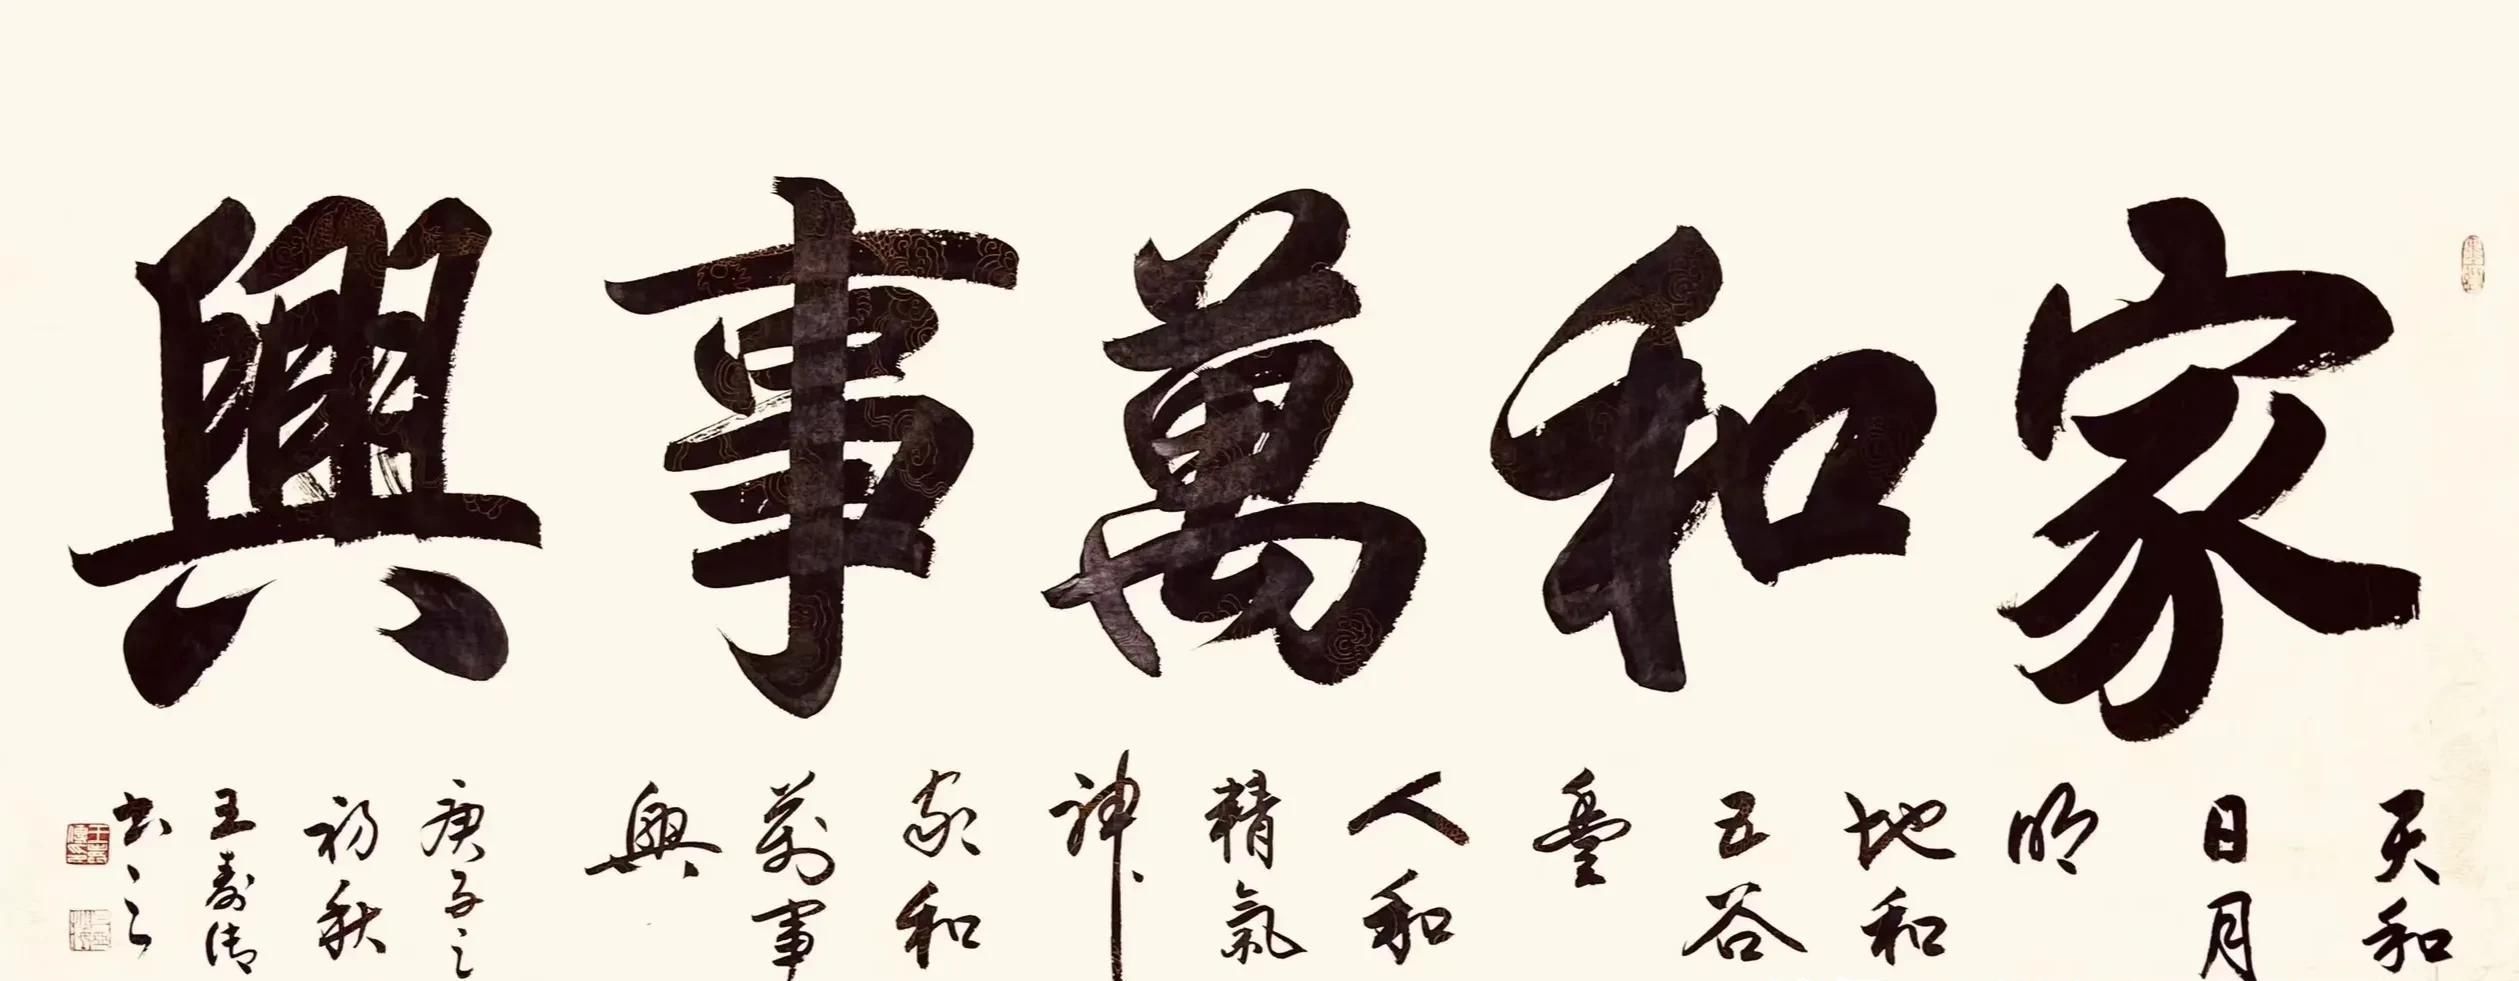 家和萬事興
天和
日月
明
地和
五谷
豐
人和
精氣
神
家和
萬事
興
庚子之
初秋
王壽清
書之